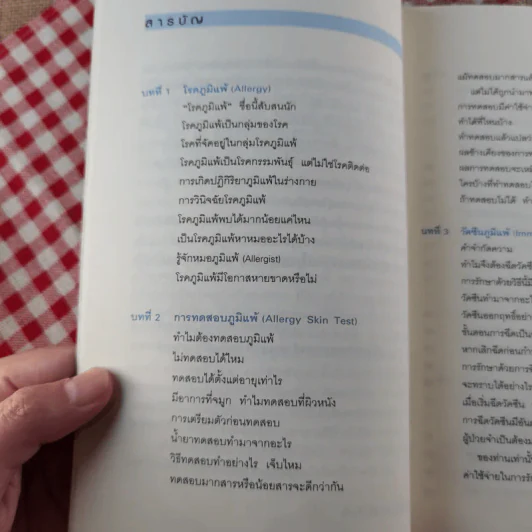 สารบัญ
บทที่ 1 โรคภูมิแพ้ (Allergy)
"โรคภูมิแพ้" ชื่อนี้สับสนนัก
โรคภูมิแพ้เป็นกลุ่มของโรค
โรคที่จัดอยู่ในกลุ่มโรคภูมิแพ้
โรคภูมิแพ้เป็นโรคกรรมพันธุ์ แต่ไม่ใช่โรคติดต่อ
การเกิดปฏิกิริยาภูมิแพ้ในร่างกาย
การวินิจฉัยโรคภูมิแพ้
โรคภูมิแพ้พบได้มากน้อยแค่ไหน
เป็นโรคภูมิแพ้หาหมออะไรได้บ้าง
รู้จักหมอภูมิแพ้ (Allergist)
โรคภูมิแพ้มีโอกาสหายขาดหรือไม่
บทที่ 2 การทดสอบภูมิแพ้ (Allergy Skin Test)
ทำไมต้องทดสอบภูมิแพ้
ไม่ทดสอบได้ไหม
ทดสอบได้ตั้งแต่อายุเท่าไร
มีอาการที่จมูก ทำไมทดสอบที่ผิวหนัง
การเตรียมตัวก่อนทดสอบ
น้ำยาทดสอบทำมาจากอะไร
วิธีทดสอบทำอย่างไร เจ็บไหม
ทดสอบมากสารหรือน้อยสารจะดีกว่ากัน
แม้ทดสอบมากสารแล้
แต่ไม่ได้ถูกนำมา
การทดสอบมีค่าใช้จ่า
ทำได้ที่ไหนบ้าง
ทำทดสอบแล้วแปลว
ผลข้างเคียงของการท
ผลการทดสอบจะเหมื
ใครบ้างที่ทำทดสอบ
ถ้าทดสอบไม่ได้ ทำ
บทที่ 3 วัคซีนภูมิแพ้ (Imm
คำจำกัดความ
ทำไมจึงต้องฉีดวัคซี
การรักษาด้วยวิธีนี้มี
วัคซีนทำมาจากอะไ
วัคซีนออกฤทธิ์อย่า
ขั้นตอนการฉีดเป็นอ
หากเลิกฉีดก่อนกำ
การรักษาด้วยการฉี
จะทราบได้อย่างไร
เมื่อเริ่มฉีดวัคซีน
การฉีดวัคซีนมีอัน
ผู้ป่วยจำเป็นต้อง
ของท่านเท่านั้
ค่าใช้จ่ายในการรั